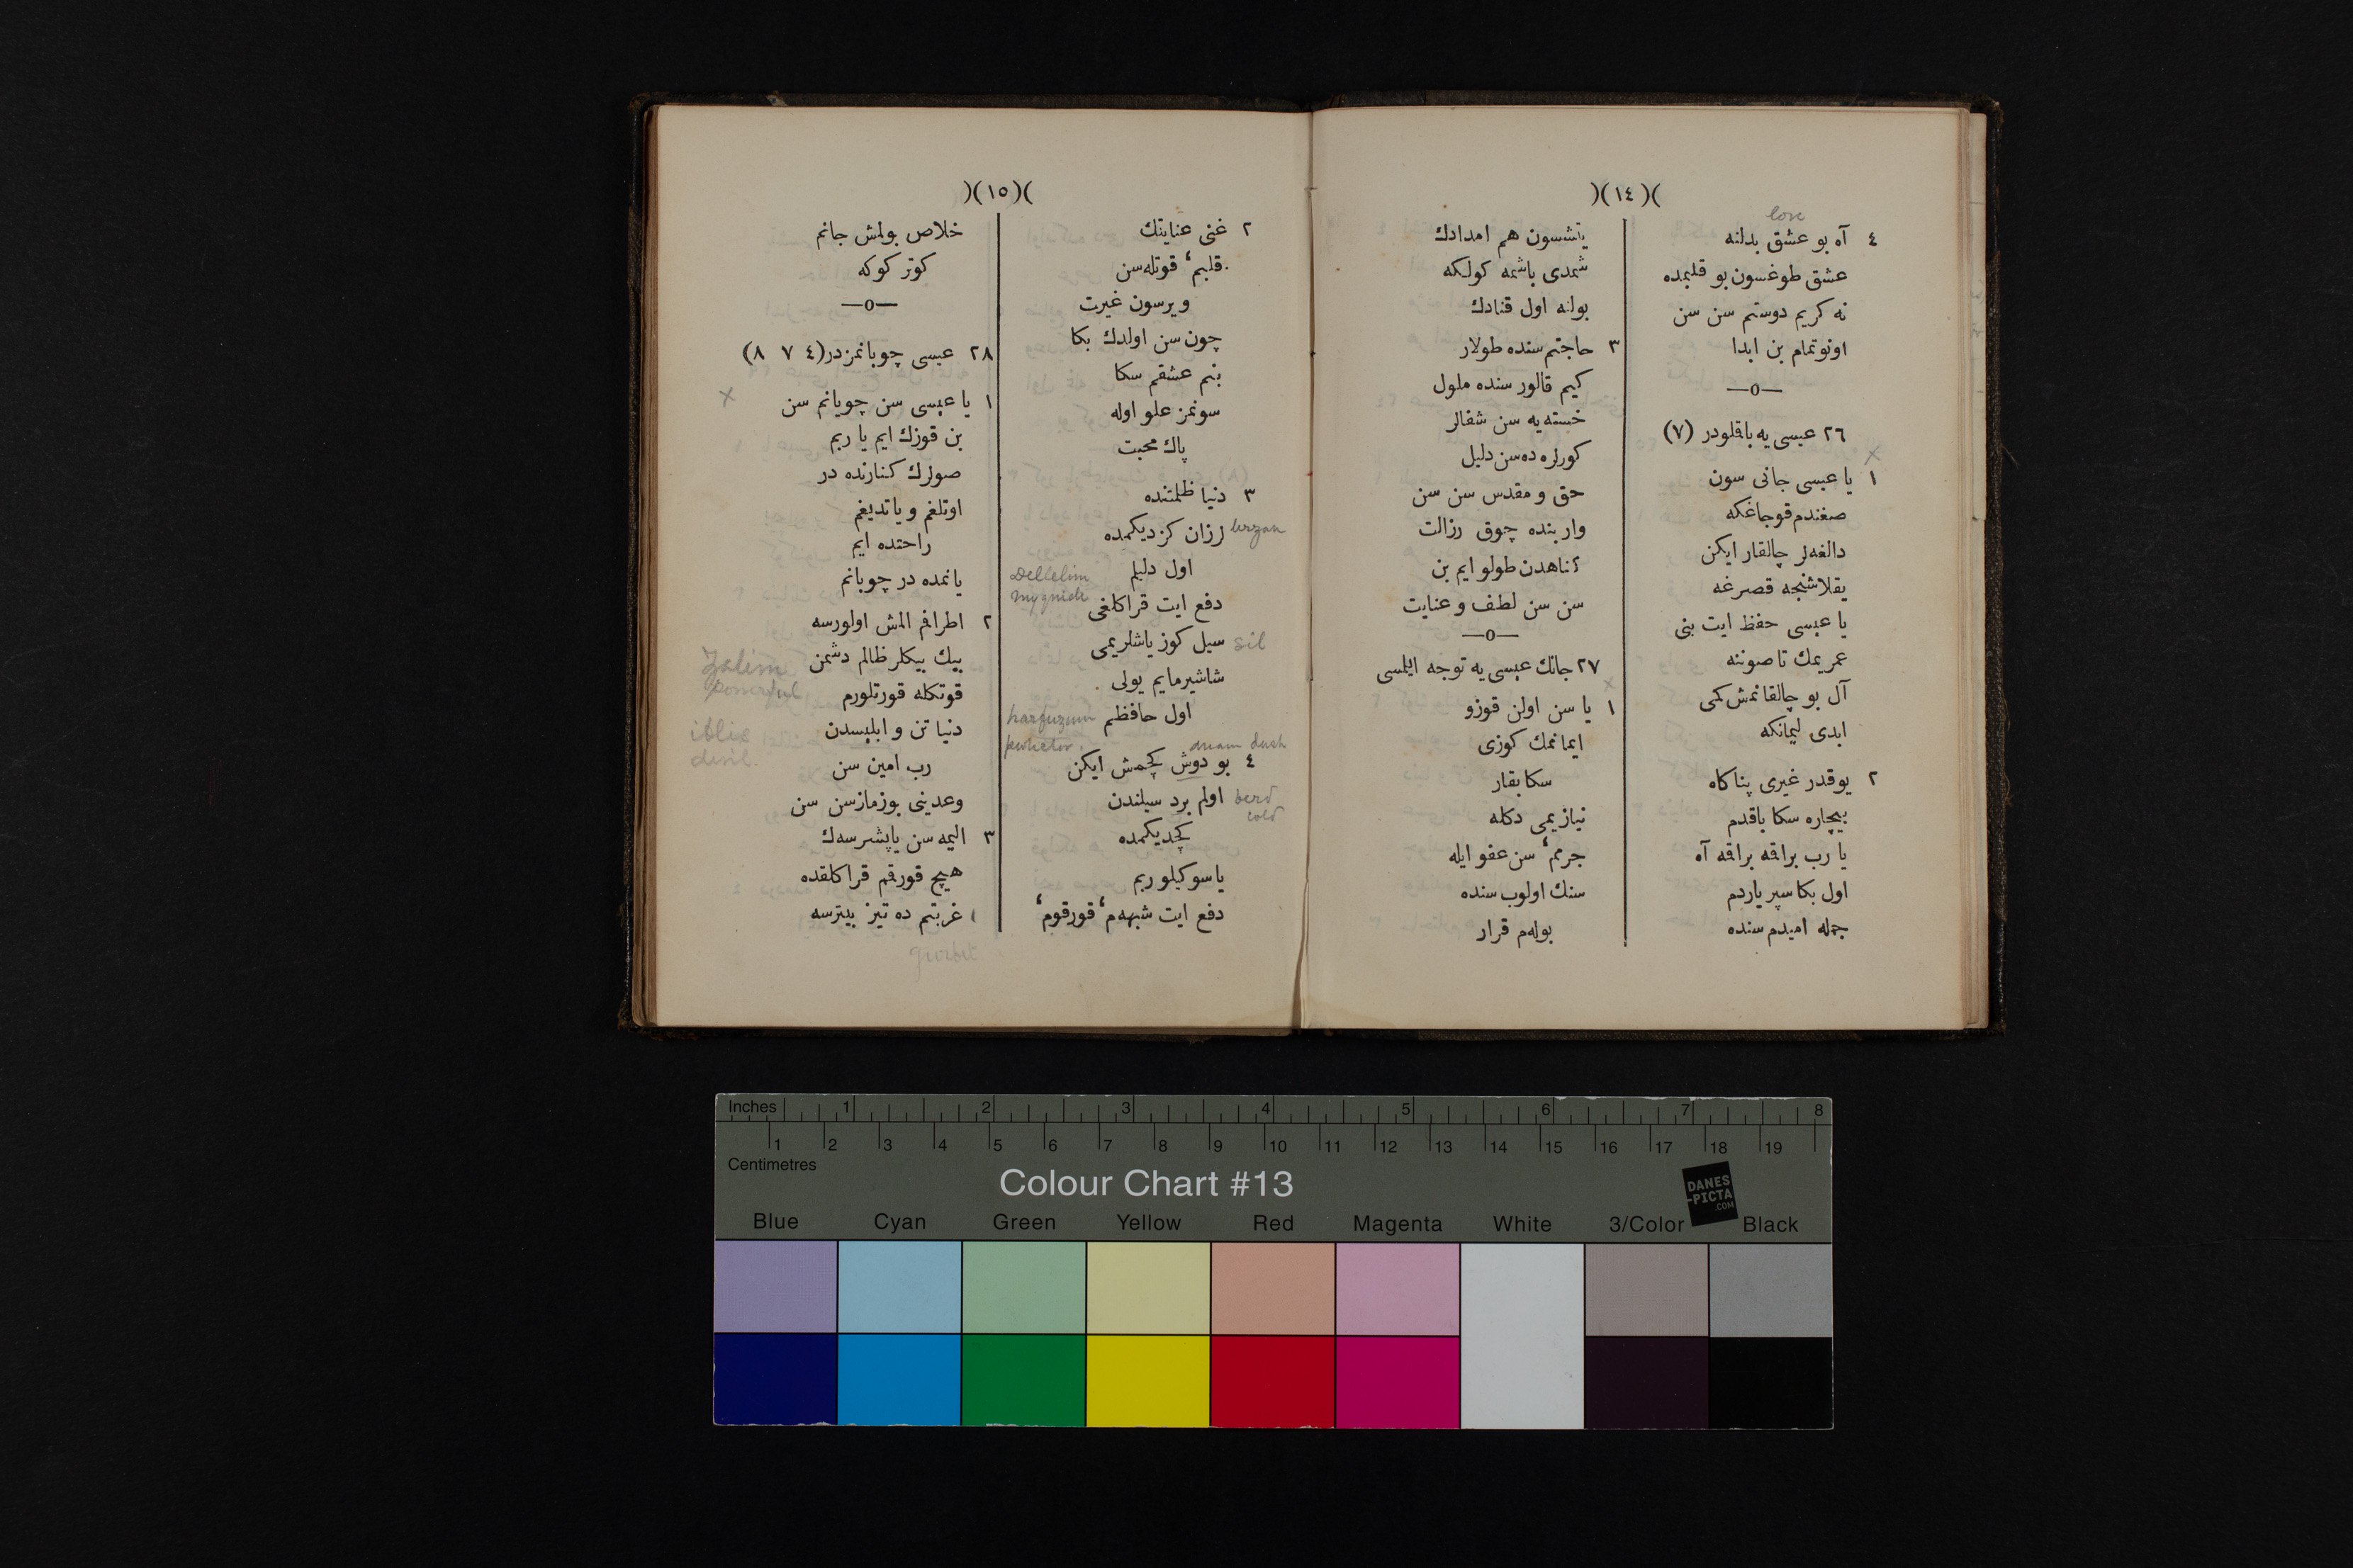 )(١٤)(
love
٤ آه بو عشق بدلنه
عشق طوغسون بو قلبمده
نه كريم دوستم سن سن
اونوتمام بن ابدا
—o—
٢٦ عيسى يه باقلودر (٧)
x
١ يا عيسى جانى سون
صغندم قوجاغكه
دالغه‌لر چالقار ايكن
يقلاشنجه قصرغه
يا عيسى حفظ ايت بنى
عمريمك تا صوننه
آل بو چالقانمش كمى
ابدى ليمانكه
٢ يوقدر غيرى پناكاه
بيچاره سكا باقدم
يا رب براقه براقه آه
اول بكا سپر ياردم
جمله اميدم سنده
يتشسون هم امدادك
شمدى باشمه كولكه
بولنه اول قنادك
٣ حاجتم سنده طولار
كيم قالور سنده ملول
خسته‌يه سن شفالر
كورلره ده سن دليل
حق و مقدس سن سن
وار بنده چوق رزالت
گناهدن طولو ايم بن
سن سن لطف و عنايت
—o—
٢٧ جانك عيسى يه توجه ايلمسى
x
١ يا سن اولن قوزو
ايمانمك كوزى
سكا بقار
نيازيمى دكله
جرمم، سن عفو ايله
سنك اولوب سنده
بوله‌م قرار
)(١٥)(
٢ غنى عنايتك
قلبم، قوتله‌سن
ويرسون غيرت
چون سن اولدك بكا
بنم عشقم سكا
سونمز علو اوله
پاك محبت
٣ دنيا ظلمتنده
لرزان كزديكمده lerzan
اول دليلم Dellelim
my guide
دفع ايت قراكلغى
سيل كوز ياشلريمى sil
شاشيرمايم يولى
اول حافظم harfuzum
protector
dream dush
٤ بو دوش كچمش ايكن
اولم برد سيلندن berd
cold
كچديكمده
يا سوكيلو ربم
دفع ايت شبهه‌م، قورقوم،
خلاص بولمش جانم
كوتر كوكه
—o—
٢٨ عيسى چوبانمزدر (٤ ٧ ٨)
x
١ يا عيسى سن چوبانم سن
بن قوزك ايم يا ربم
صولرك كنارنده در
اوتلغم و ياتديغم
راحتده ايم
يانمده در چوبانم
٢ اطرافم المش اولورسه
بيك بيكلر ظالم دشمن
Zalim
powerful
قوتكله قورتلورم
دنيا تن و ابليسدن
iblis
devil.
رب امين سن
وعدينى بوزمازسن سن
٣ اليمه سن ياپشرسه‌ك
هيچ قورقم قراكلقده
غربتم ده تيز بيترسه
gurbet
Inches 1 2 3 4 5 6 7 8
1 2 3 4 5 6 7 8 9 10 11 12 13 14 15 16 17 18 19
Centimetres
Colour Chart #13
DANES
-PICTA
.COM
Blue Cyan Green Yellow Red Magenta White 3/Color Black